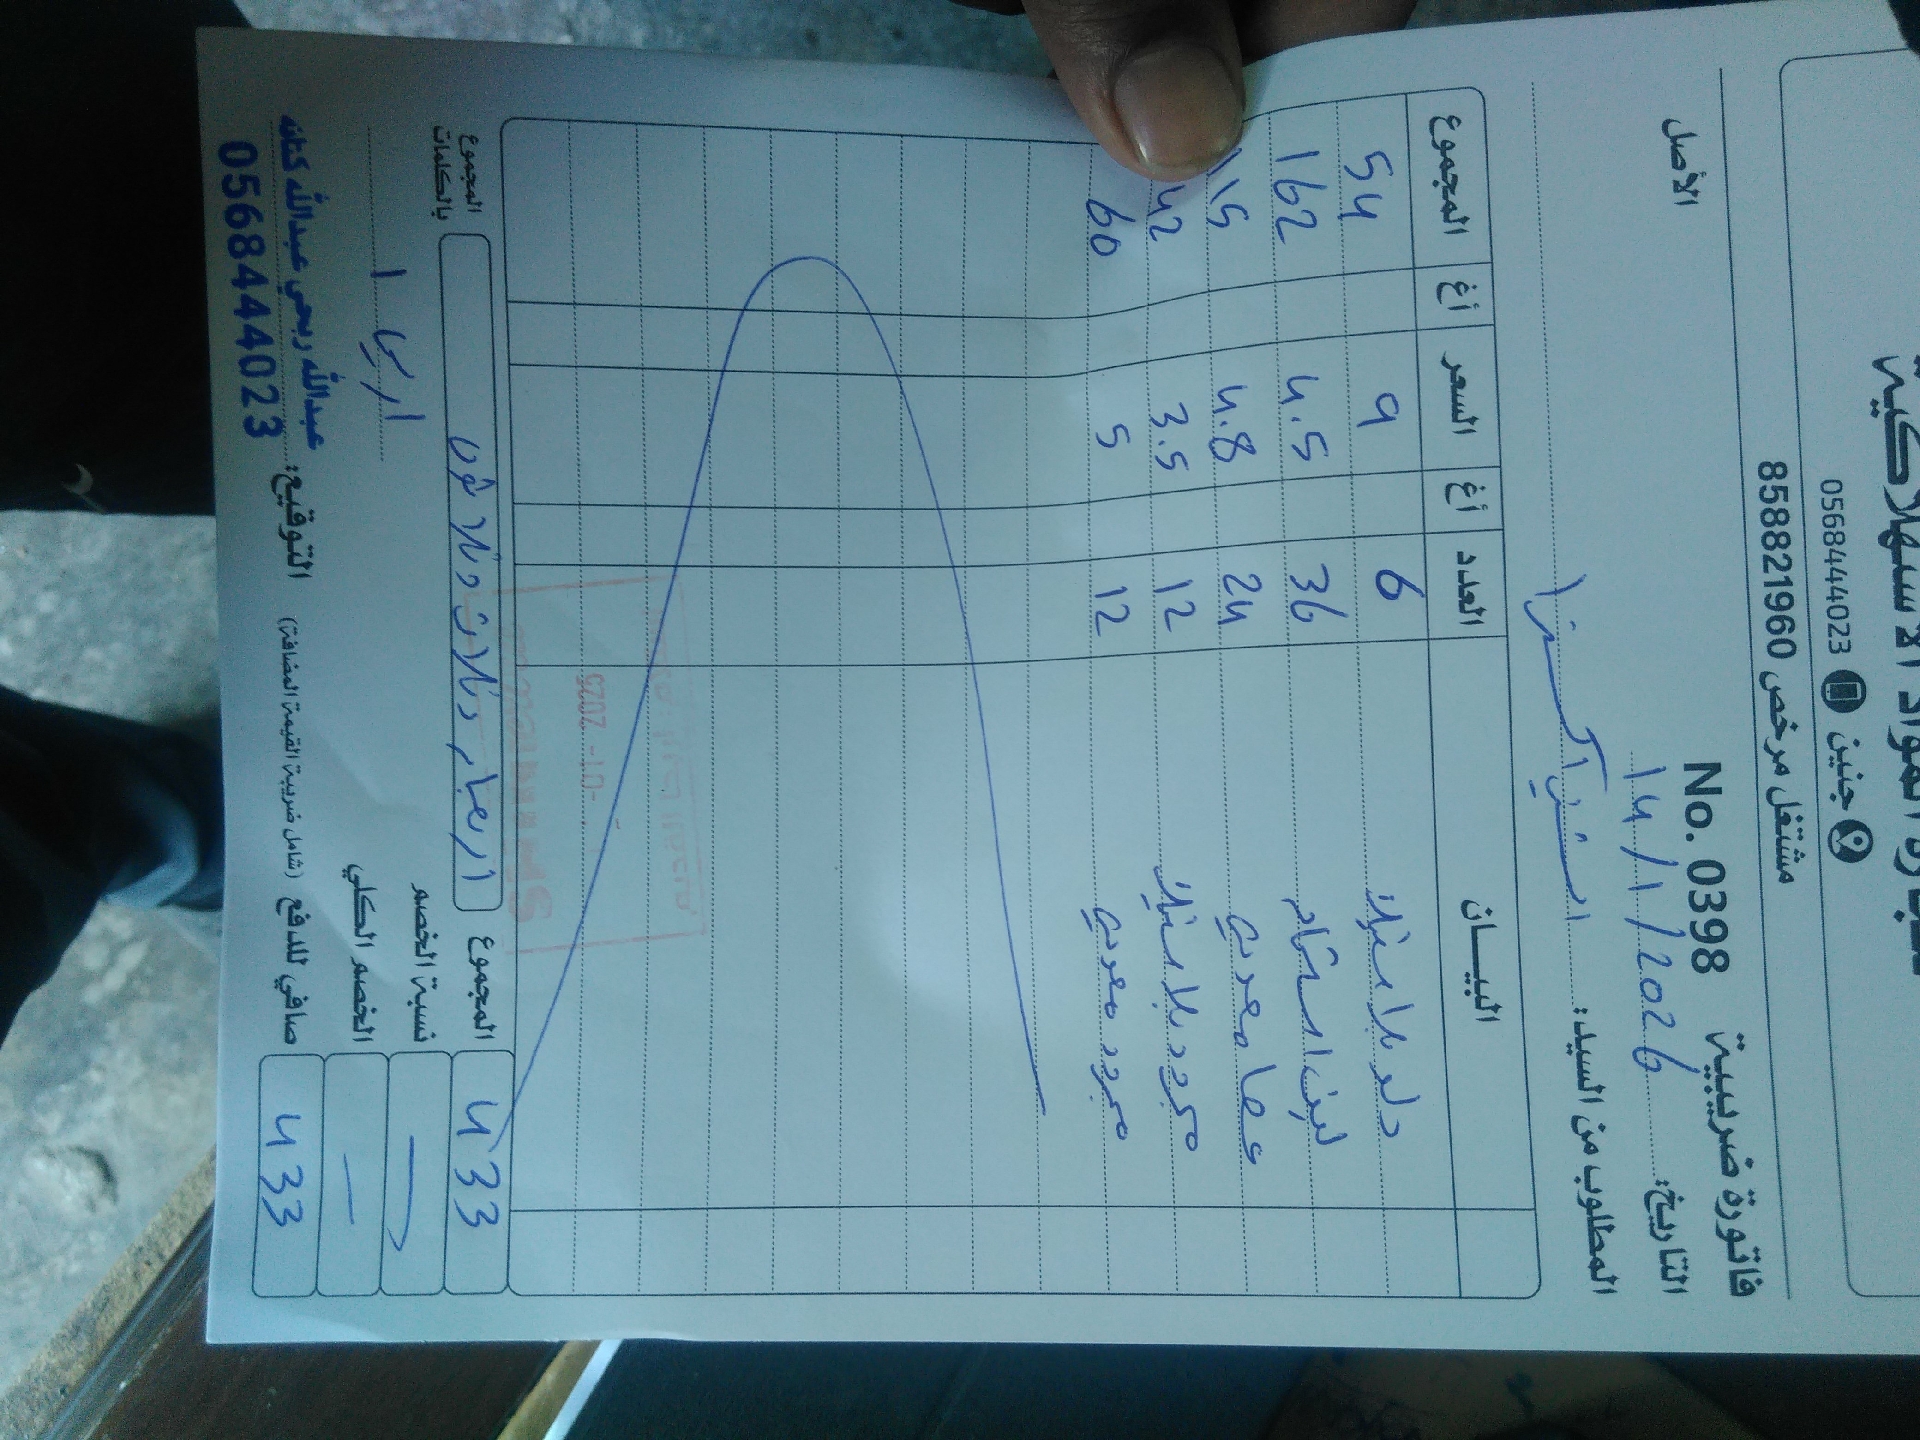 المواد الاستهلاكية
جنين 0568444023
مشتغل مرخص 858821960
فاتورة ضريبية No. 0398 الأصل
التاريخ: 14/1/2026
المطلوب من السيد:
البيان العدد أغ السعر أغ المجموع
دلو بلاستيك 6 9 54
36 4.5 162
عصا معدن 24 4.8 115
مجرد بلاستيك 12 3.5 42
مجرد معدن 12 5 60
-01- 2025
المجموع 433 اربعمائة وثلاث وثلاثون المجموع بالكلمات
نسبة الخصم
الخصم الكلي —
صافي للدفع (شامل ضريبة القيمة المضافة) 433
التوقيع: عبدالله ربحي عبدالله
0568444023